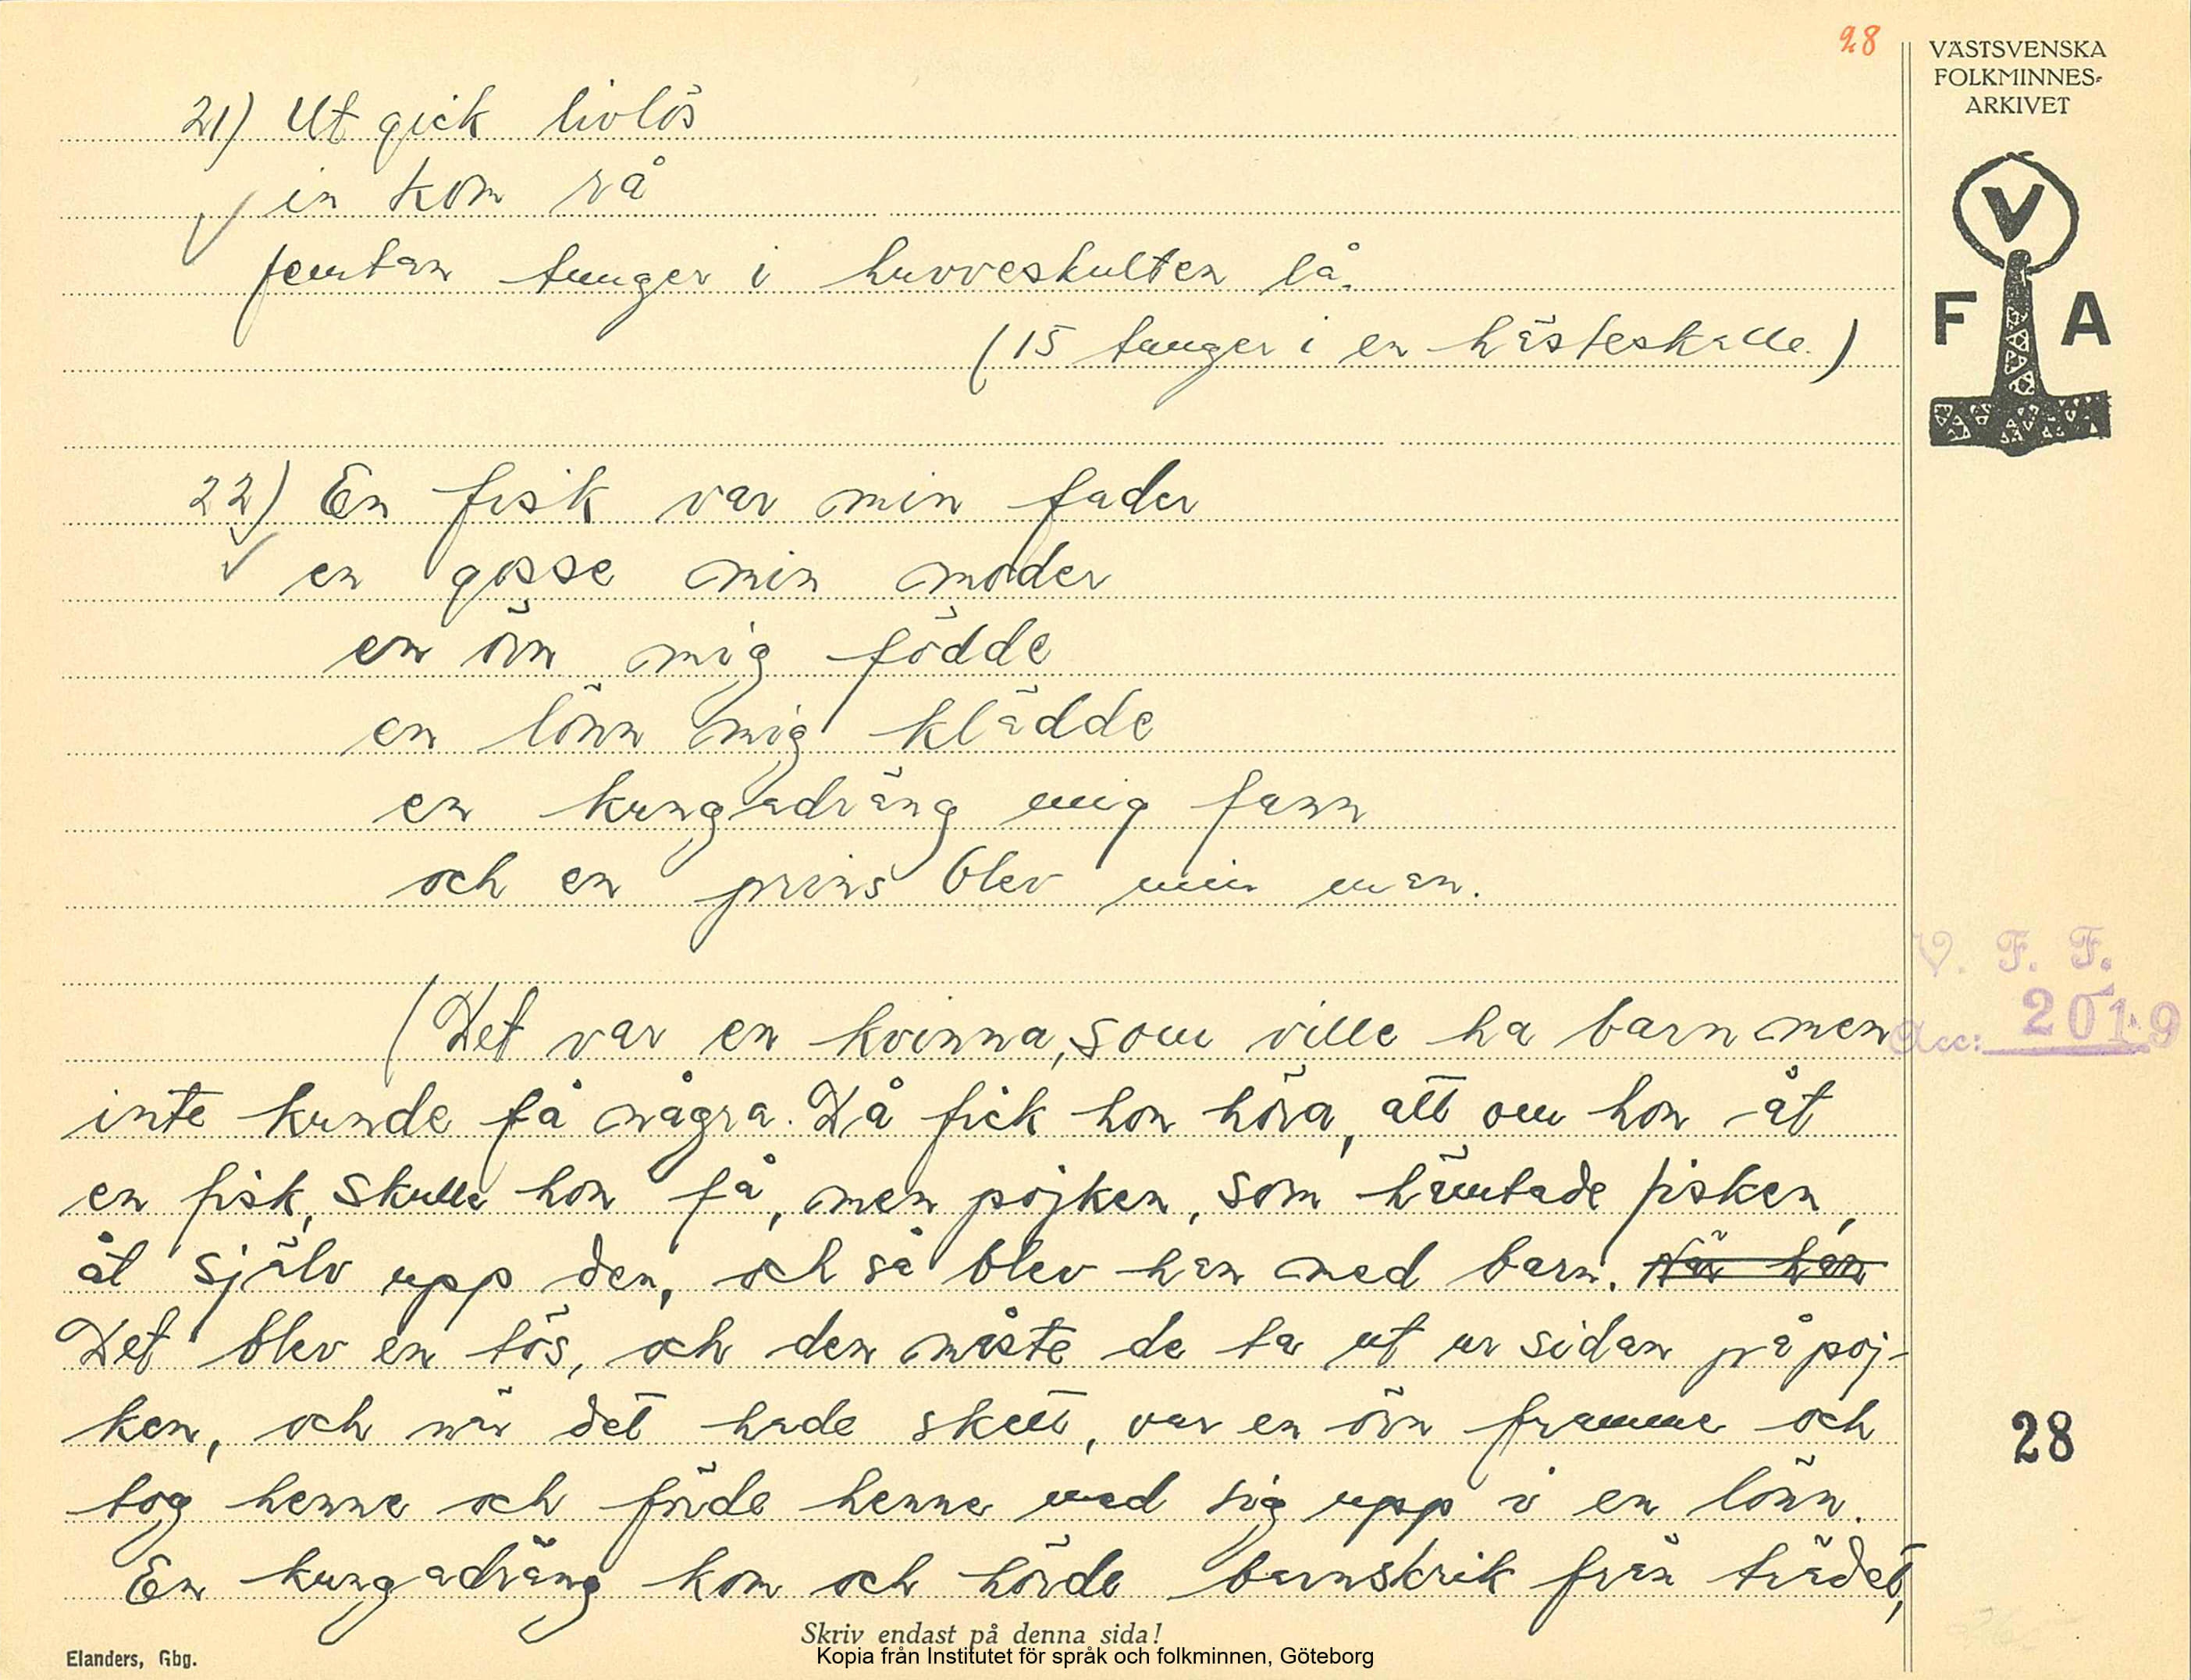 28
VÄSTSVENSKA
FOLKMINNES-
ARKIVET
V
F A
21) Ut gick livlös
in kom rå
femtan tunger i huvveskulten lå.
(15 tunger i en hästeskalle.)
22) En fisk var min fader
en gosse min moder
en örn mig födde
en lönn mig klädde
en kungadräng mig fann
och en prins blev min man.
V. F. F.
Acc: 2019
(Det var en kvinna, som ville ha barn men
inte kunde få några. Då fick hon höra, att om hon åt
en fisk, skulle hon få, men pojken, som hämtade fisken,
åt själv upp den, och så blev han med barn. När han
Det blev en tös, och den måste de ta ut ur sidan på poj-
ken, och när det hade skett, var en örn framme och
tog henne och förde henne med sig upp i en lönn.
En kungadräng kom och hörde barnskrik från trädet,
28
Skriv endast på denna sida!
Elanders, Gbg.
Kopia från Institutet för språk och folkminnen, Göteborg